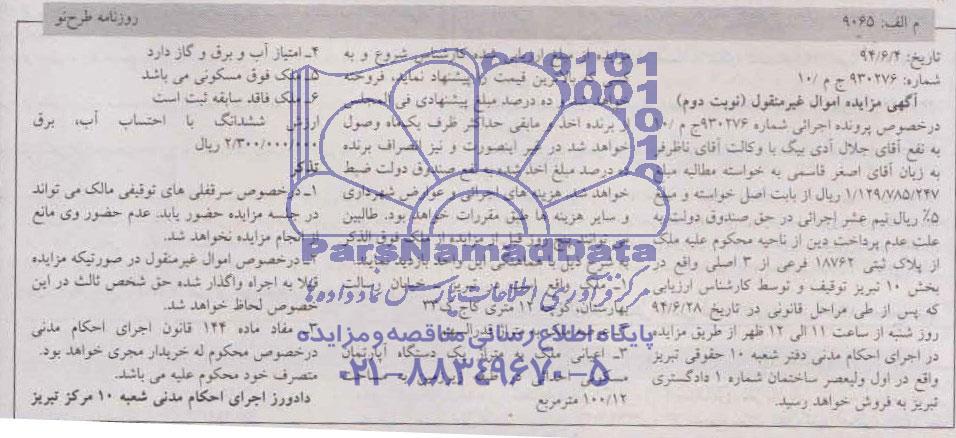 م الف: ۹۰۶۵
روزنامه طرح‌نو
تاریخ: ۹۴/۶/۴
شماره: ۹۳۰۲۷۶ ج م /۱۰
آگهی مزایده اموال غیرمنقول (نوبت دوم)
درخصوص پرونده اجرائی شماره ۹۳۰۲۷۶ج م
به نفع آقای جلال آدی بیگ با وکالت آقای ناظرفر
به زیان آقای اصغر قاسمی به خواسته مطالبه مبلغ
۱/۱۲۹/۷۸۵/۲۴۷ ریال از بابت اصل خواسته و مبلغ
۵٪ ریال نیم عشر اجرائی در حق صندوق دولت به
علت عدم پرداخت دین از ناحیه محکوم علیه ملک
از پلاک ثبتی ۱۸۷۶۲ فرعی از ۳ اصلی واقع در
بخش ۱۰ تبریز توقیف و توسط کارشناس ارزیابی
که پس از طی مراحل قانونی در تاریخ ۹۴/۶/۲۸
روز شنبه از ساعت ۱۱ الی ۱۲ ظهر از طریق مزایده
در اجرای احکام مدنی دفتر شعبه ۱۰ حقوقی تبریز
واقع در اول ولیعصر ساختمان شماره ۱ دادگستری
تبریز به فروش خواهد رسید.
مزایده از مبلغ ارزیابی شده کارشناس شروع و به
بالاترین قیمت پیشنهاد نماید، فروخته
ده درصد مبلغ پیشنهادی فی
برنده اخذ و مابقی حداکثر ظرف یک‌ماه وصول
خواهد شد در غیر اینصورت و نیز انصراف برنده
ده درصد مبلغ اخذ شده به نفع صندوق دولت ضبط
خواهد شد. هزینه های اجرائی و عوارض شهرداری
و سایر هزینه ها طبق مقررات خواهد بود. طالبین
می توانند پنج روز قبل از مزایده از ملک فوق الذکر
به شرح ذیل با هماهنگی این دفتر بازدید نمایند.
۱- ملک واقع در تبریز خیابان رسالت
بهارستان، کوچه ۱۲ متری کاج پ۳۳
۳- اعیانی ملک به متراژ یک دستگاه آپارتمان
مسکونی
۱۰۰/۱۲ مترمربع
۴- امتیاز آب و برق و گاز دارد
۵- ملک فوق مسکونی می باشد
۶- ملک فاقد سابقه ثبت است
ارزش ششدانگ با احتساب آب، برق
۲/۳۰۰/۰۰۰/۰۰۰ ریال
تذکر
۱- درخصوص سرقفلی های توقیفی مالک می تواند
در جلسه مزایده حضور یابد. عدم حضور وی مانع
از انجام مزایده نخواهد شد.
۲- درخصوص اموال غیرمنقول در صورتیکه مزایده
قبلا به اجراه واگذار شده حق شخص ثالث در این
خصوص لحاظ خواهد شد.
۳- مفاد ماده ۱۴۴ قانون اجرای احکام مدنی
درخصوص محکوم له خریدار مجری خواهد بود.
متصرف خود محکوم علیه می باشد.
دادورز اجرای احکام مدنی شعبه ۱۰ مرکز تبریز
ParsNamadData
مرکز فرآوری اطلاعات پارس نماد داده ها
پایگاه اطلاع رسانی مناقصه و مزایده
۰۲۱-۸۸۳۴۹۶۷۰-۵